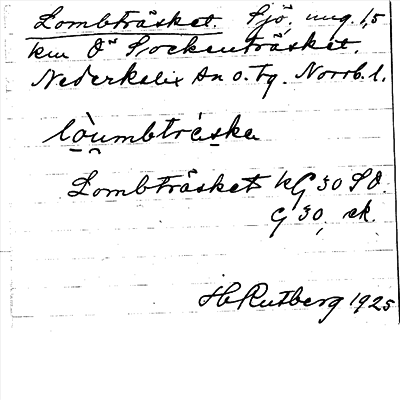 Lombträsket. Sjö, ung. 1,5
km Ö Sockenträsket.
Nederkalix sn o. tg. Norrb. l.
lòumbtrèska
Lombträsket kG 30 SO.
G 30, ek.
H Rutberg 1925